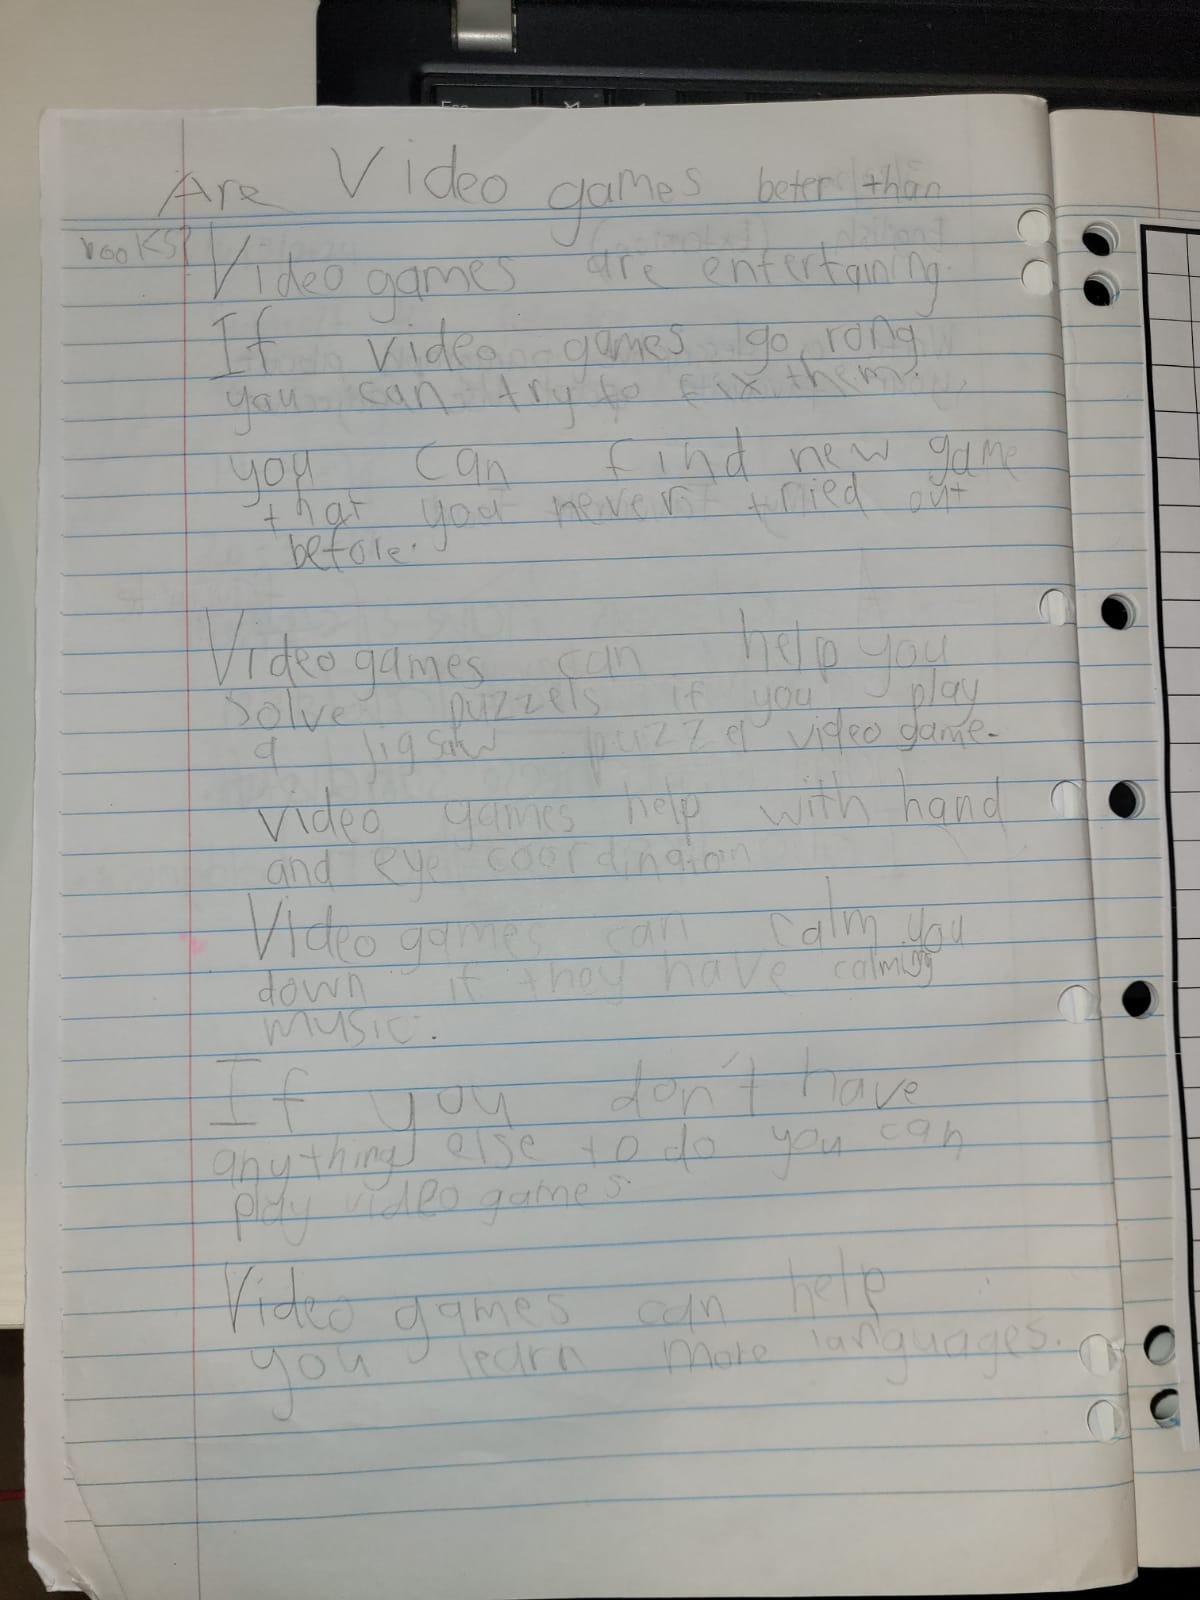 Are Video games beter than
books?
Video games are entertaining.
If video games go rong
you can try to fix them.
you can find new game
that you never tried out
before.
Video games can help you
solve puzzels if you play
a jigsaw video game.
video games help with hand
and eye coordination
Video games can calm you
down if they have calming
music.
If you don't have
anything else to do you can
play video games.
Video games can help
you learn more languages.